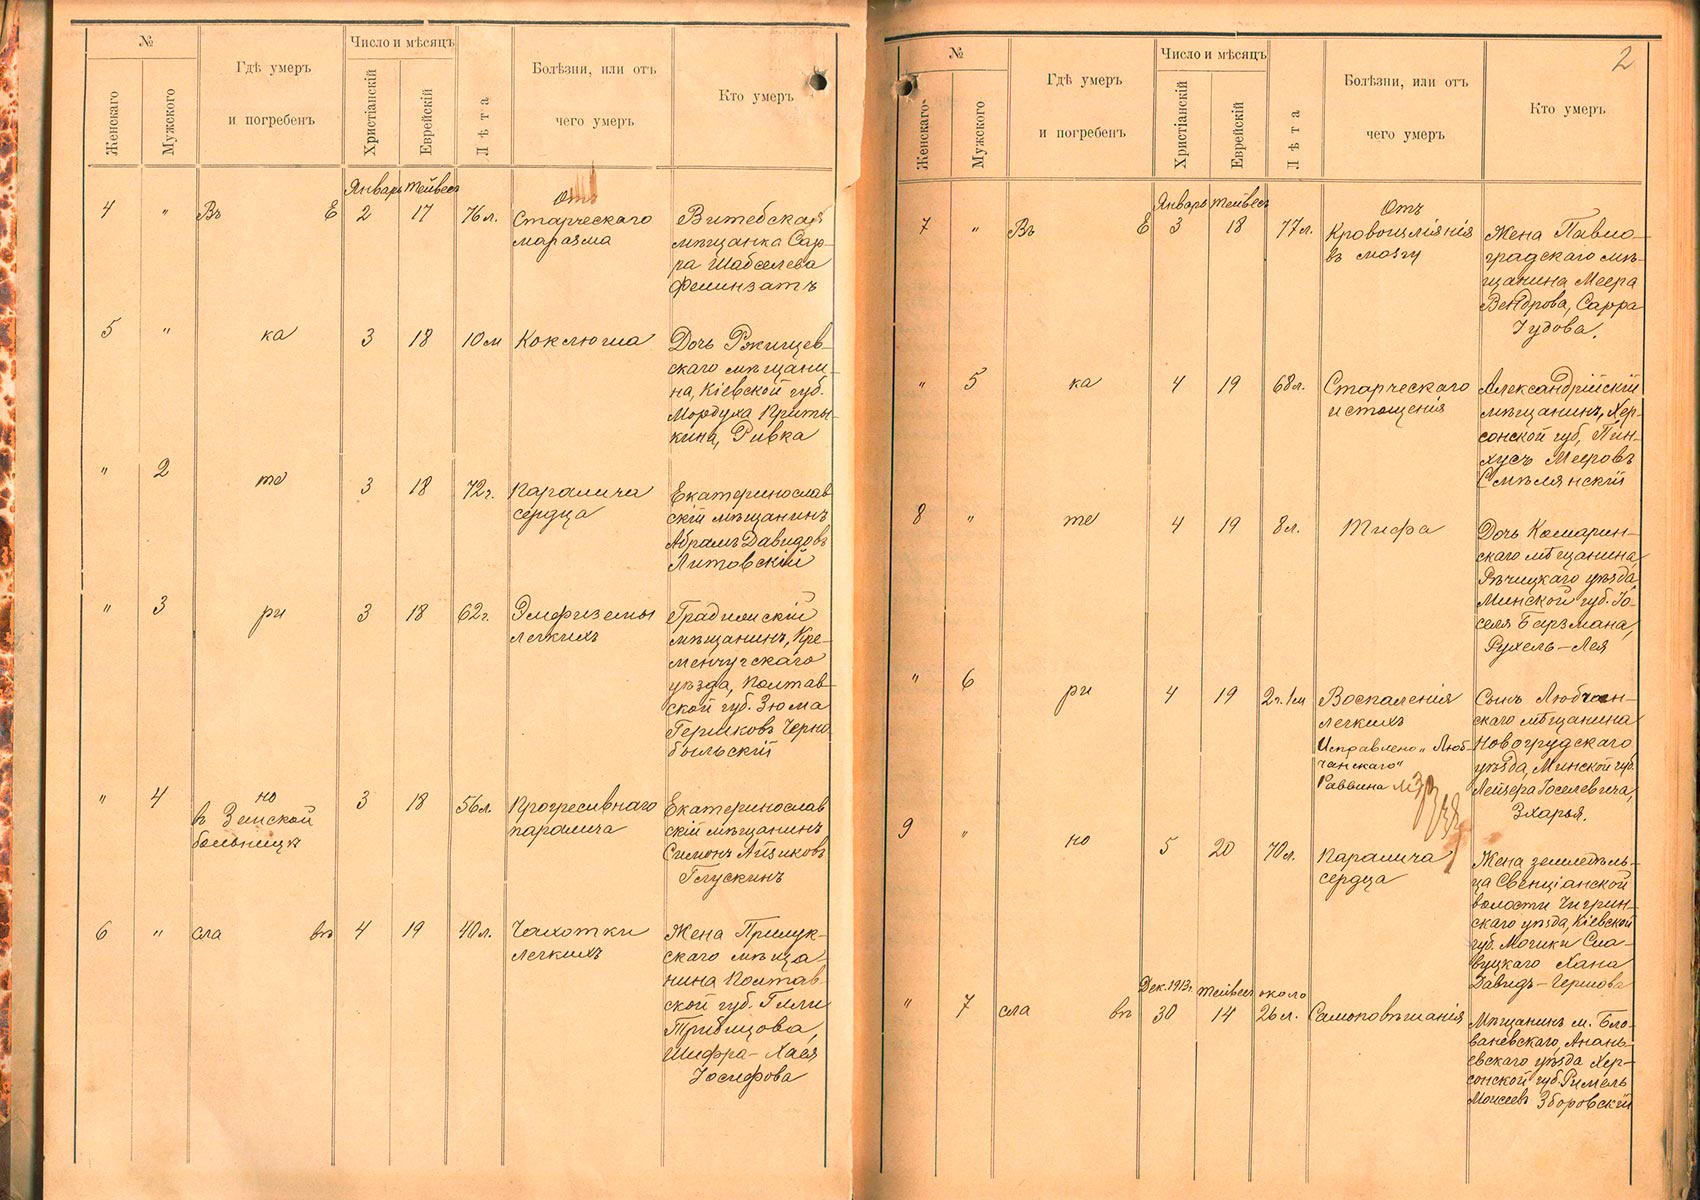 №
Женскаго
Мужского
Гдѣ умеръ
и погребенъ
Число и мѣсяцъ
Христіанскій
Еврейскій
Лѣта
Болѣзни, или отъ
чего умеръ
Кто умеръ
Январь Тейвесъ
4 " Въ Е 2 17 76 л.
Отъ
Старческаго
маразма
Витебская
мѣщанка Сар-
ра Шабселева
5 " ка 3 18 10 м Коклюша
Дочь Ржищев-
скаго мѣщани-
на, Кіевской губ.
Мордуха Криты-
кина, Ривка
" 2 те 3 18 72 г. Паралича
сердца
Екатеринослав
скій мѣщанинъ
Абрамъ Давидовъ
Литовскій
" 3 ри 3 18 62 г. Эмфиземы
легкихъ
Градижскій
мѣщанинъ, Кре-
менчугскаго
уѣзда, Полтав-
ской губ. Зюма
Гершковъ Черно
быльскій
" 4 но
въ Земской
больницѣ
3 18 56 л. Прогресивнаго
паралича
Екатеринослав
скій мѣщанинъ
Симонъ Айзиковъ
Глускинъ
6 " сла въ 4 19 40 л. Чахотки
легкихъ
Жена Прилук-
скаго мѣща-
нина Полтав
ской губ. Гили
Трибицова,
Шифра-Хася
Іосифова
2
№
Женскаго
Мужского
Гдѣ умеръ
и погребенъ
Число и мѣсяцъ
Христіанскій
Еврейскій
Лѣта
Болѣзни, или отъ
чего умеръ
Кто умеръ
Январь Тейвесъ
7 " Въ Е 3 18 77 л.
Отъ
Кровоизліянія
въ мозгу
Жена Павло-
градскаго мѣ-
щанина Меера
Вендрова, Сарра
Іудова.
" 5 ка 4 19 68 л. Старческаго
истощенія
Александрійскій
мѣщанинъ, Хер-
сонской губ, Пин-
хусъ Мееровъ
Смѣлянскій
8 " те 4 19 8 л. Тифа
Дочь Комарин-
скаго мѣщанина,
Рѣчицкаго уѣзда
Минской губ. Іо-
селя Барзмана,
Рухель-Лея
" 6 ри 4 19 2 г. 1 м Воспаленія
легкихъ
Исправлено "Люб-
чанскаго"
Раввина
Сынъ Любчан-
скаго мѣщанина
Новогрудскаго
уѣзда, Минской губ.
Лейзера Іоселевича,
Зхарья.
9 " но 5 20 70 л. Паралича
сердца
Жена земледѣль-
ца Свенціанской
волости Чигрин-
скаго уѣзда, Кіевской
губ. Мошки Сла-
вуцкаго Хана
Давидъ-Гершова
Дек. 1913 г. Тейвесъ около
" 7 сла въ 30 14 26 л. Самоповѣшанія
Мѣщанинъ м. Гло-
ваневскаго, Анань-
евскаго уѣзда Хер-
сонской губ.
Моисеевъ Зборовскій